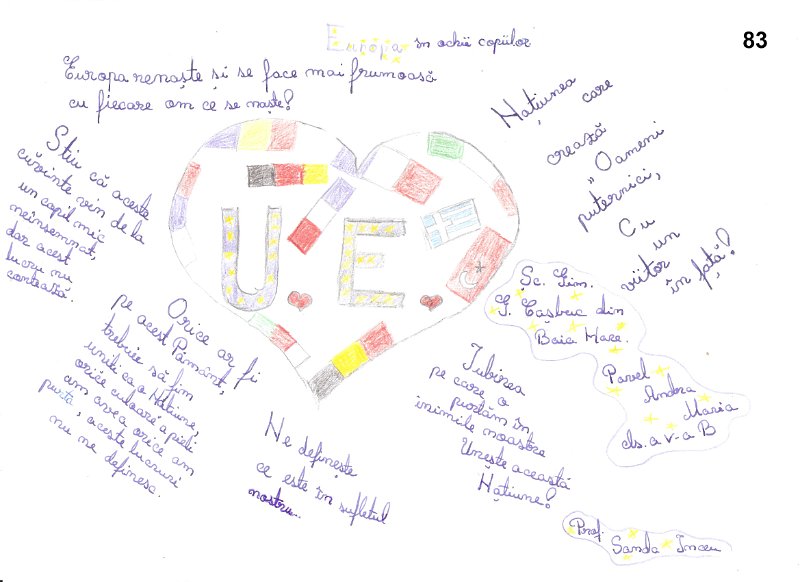 Europa în ochii copiilor
83
Europa renaște și se face mai frumoasă
cu fiecare om ce se naște!
Națiunea
care
crează
"Oameni
puternici,
Cu
un
viitor
în față!
Știu că aceste
cuvinte vin de la
un copil mic
neînsemnat,
dar acest
lucru nu
contează.
U.E.
Orice ar fi
pe acest Pământ,
trebuie să fim
uniți ca o Națiune,
orice culoare a pielii
am avea orice am
purta, aceste lucruri
nu ne definesc.
Ne definește
ce este în sufletul
nostru...
Iubirea
pe care o
purtăm în
inimile noastre
Unește această
Națiune!
Șc. Gim.
G. Coșbuc din
Baia Mare.
Pavel
Andra
Maria
cls. a V-a B
Prof.
Sanda